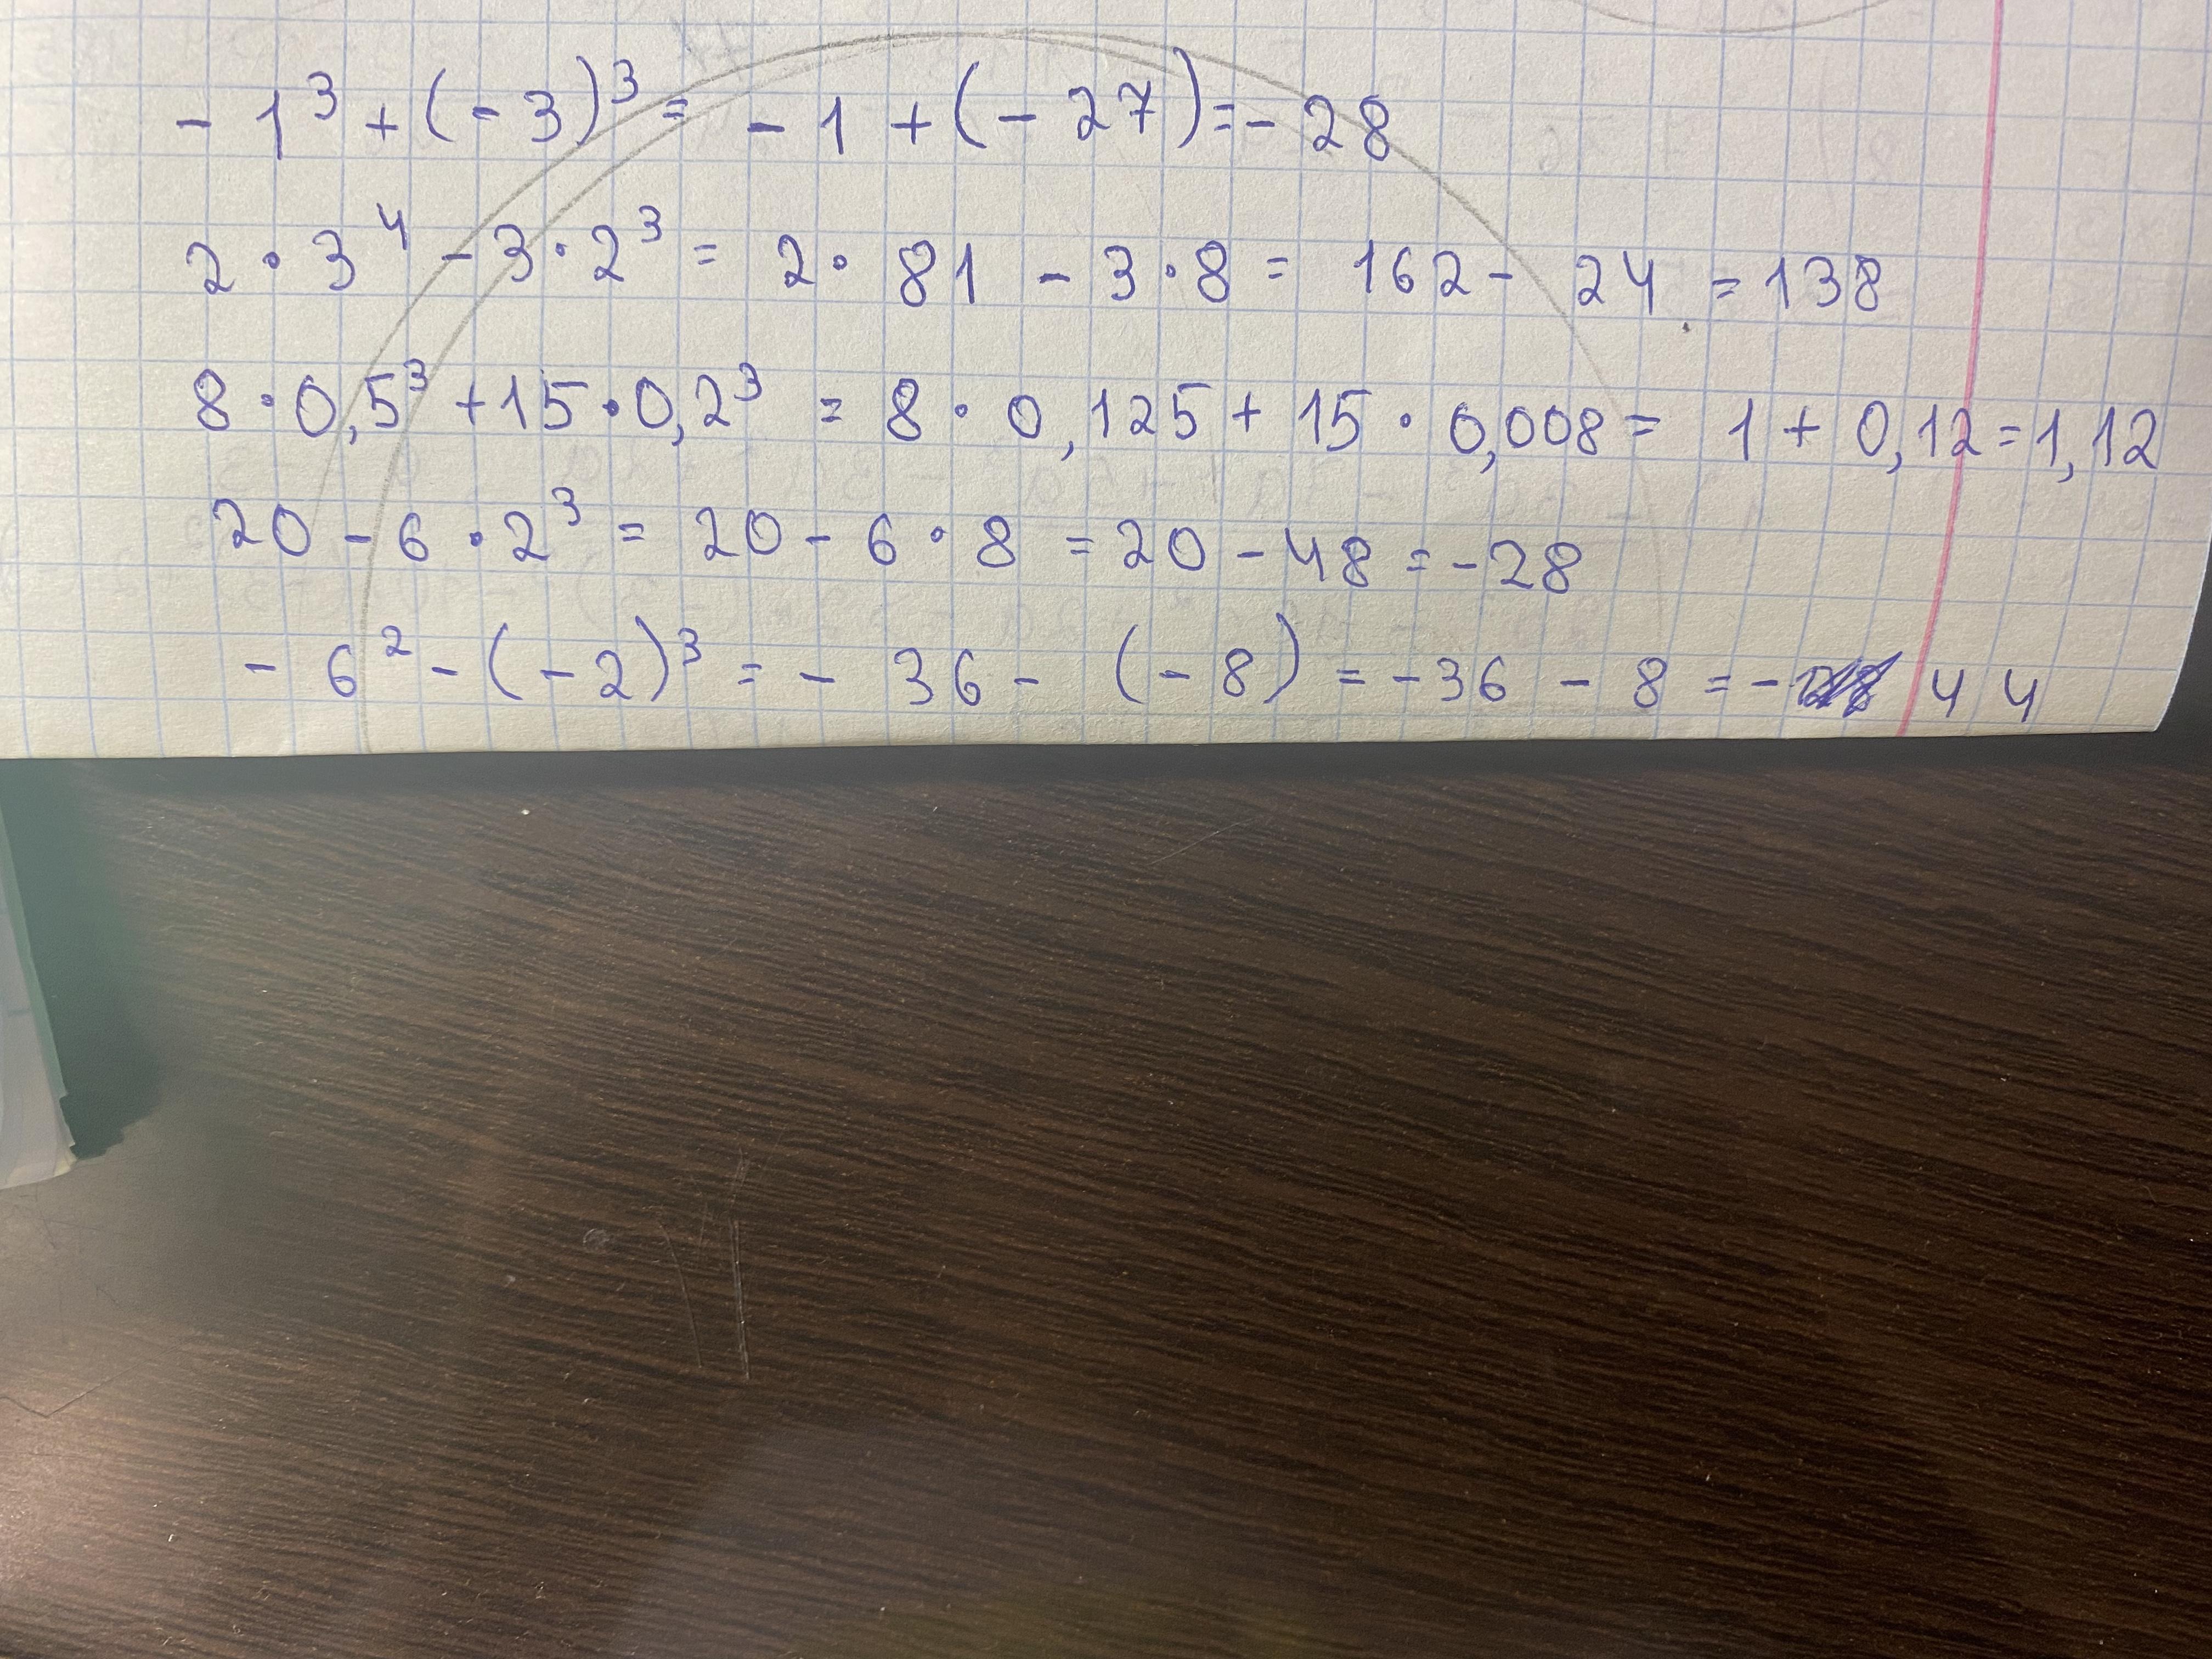 - 1³ + (- 3)³ = - 1 + (- 27) = - 28
2 · 3⁴ - 3 · 2³ = 2 · 81 - 3 · 8 = 162 - 24 = 138
8 · 0,5³ + 15 · 0,2³ = 8 · 0,125 + 15 · 0,008 = 1 + 0,12 = 1,12
20 - 6 · 2³ = 20 - 6 · 8 = 20 - 48 = -28
- 6² - (- 2)³ = - 36 - (- 8) = -36 - 8 = - 44